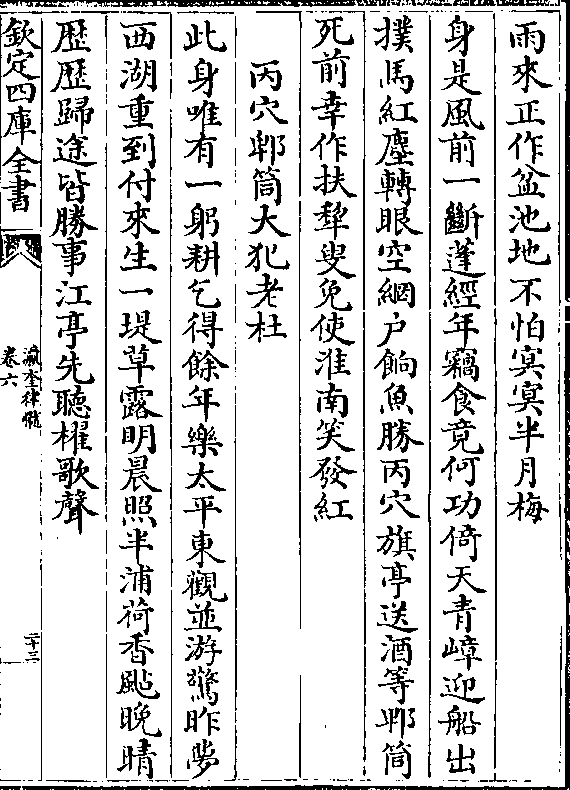 雨來正作盆池地不怕㝠㝠半月梅
身是風前一斷蓬經年竊食竟何功倚天青嶂迎船出
撲馬紅塵轉眼空網户餉魚勝丙穴旗亭送酒等郫筒
死前幸作扶犂叟免使淮南笑發紅
丙穴郫筒大犯老杜
此身唯有一躬耕乞得餘年樂太平東觀並游驚昨夢
西湖重到付來生一堤草露明晨照半浦荷香颭晚晴
歴歴歸途皆勝事江亭先聽櫂歌聲
欽定四庫全書
瀛奎律髓
卷六
二十三